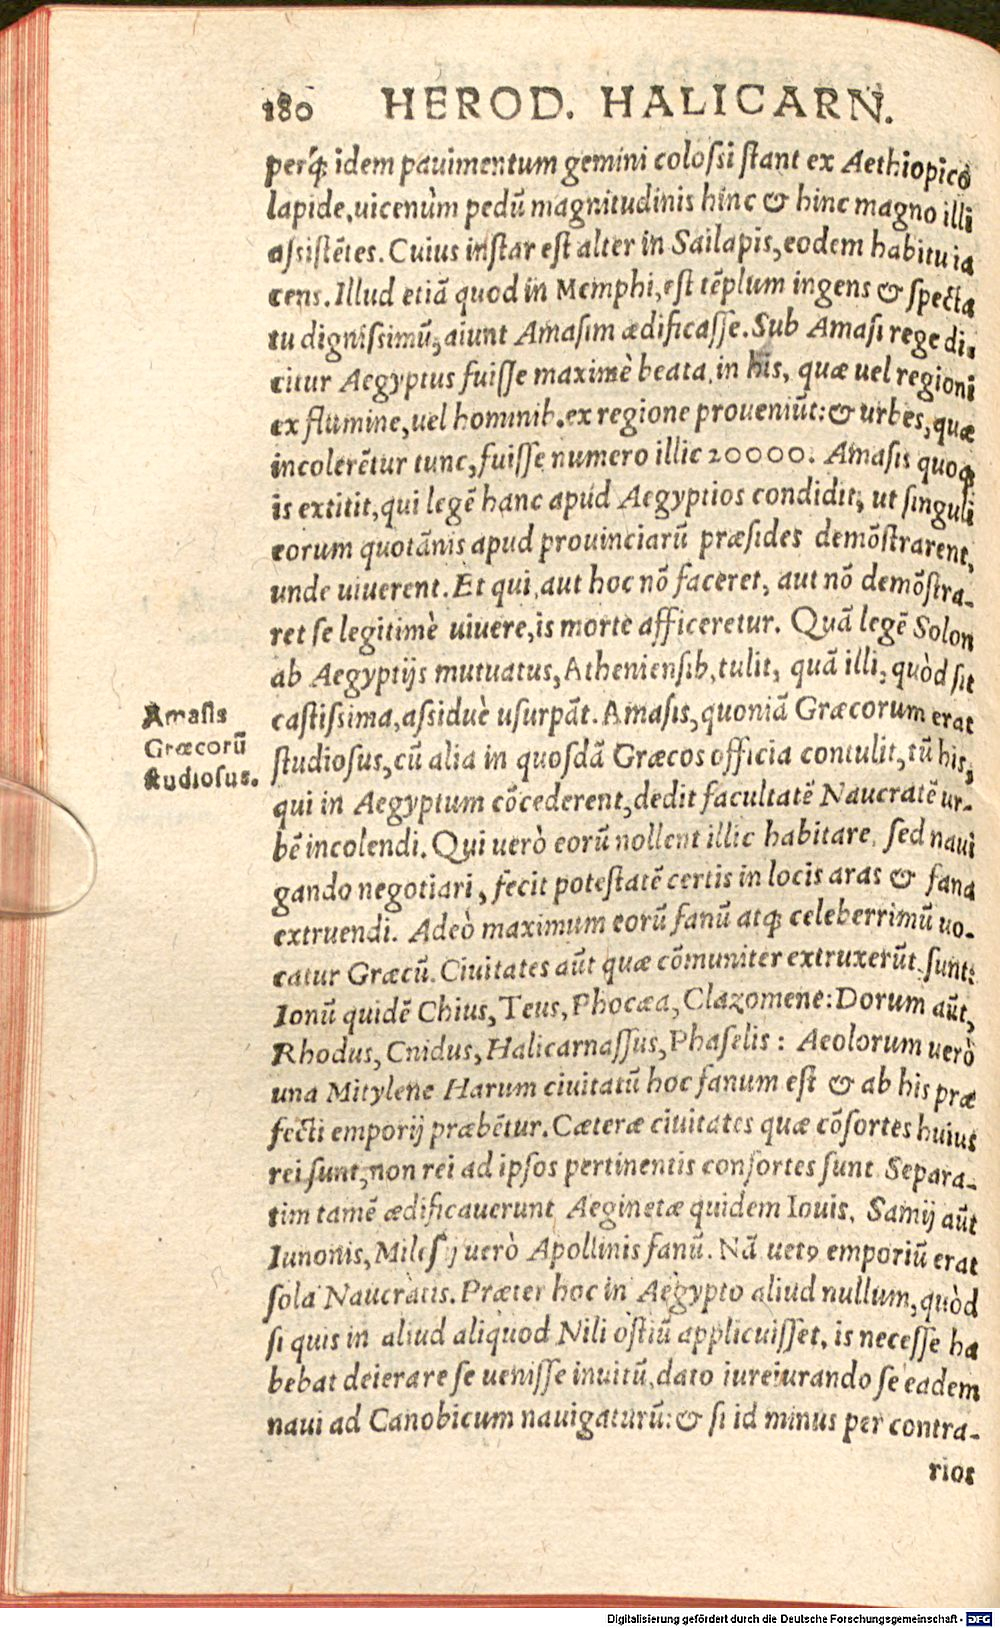 180 HEROD. HALICARN.
perq́; idem pauimentum gemini colossi stant ex Aethiopico
lapide, uicenùm pedũ magnitudinis hinc & hinc magno illi
assistẽtes. Cuius instar est alter in Sailapis, eodem habitu ia
cens. Illud etiã quod in Memphi, est tẽplum ingens & specta
tu dignissimũ, aiunt Amasim ædificasse. Sub Amasi rege di-
citur Aegyptus fuisse maximè beata, in his, quæ uel regioni
ex flumine, uel hominib. ex regione proueniũt: & urbes, quæ
incolerẽtur tunc, fuisse numero illic 20000. Amasis quoq;
is extitit, qui legẽ hanc apud Aegyptios condidit, ut singuli
eorum quotãnis apud prouinciarũ præsides demõstrarent,
unde uiuerent. Et qui aut hoc nõ faceret, aut nõ demõstra-
ret se legitimè uiuere, is morte afficeretur. Quã legẽ Solon
ab Aegyptijs mutuatus, Atheniensib. tulit, quã illi, quòd sit
castissima, assiduè usurpãt. Amasis, quoniã Græcorum erat
Amasis
Græcorũ
studiosus.
studiosus, cũ alia in quosdã Græcos officia contulit, tũ his,
qui in Aegyptum cõcederent, dedit facultatẽ Naucratẽ ur-
bẽ incolendi. Qui uerò eorũ nollent illic habitare, sed naui
gando negotiari, fecit potestatẽ certis in locis aras & fana
extruendi. Adeò maximum eorũ fanũ atq; celeberrimũ uo-
catur Græcũ. Ciuitates aũt quæ cõmuniter extruxerũt, sunt:
Ionũ quidẽ Chius, Teus, Phocæa, Clazomene: Dorum aũt,
Rhodus, Cnidus, Halicarnassus, Phaselis: Aeolorum uerò
una Mitylene Harum ciuitatũ hoc fanum est & ab his præ
fecti emporij præbẽtur. Cæteræ ciuitates quæ cõsortes huius
rei sunt, non rei ad ipsos pertinentis consortes sunt. Separa-
tim tamẽ ædificauerunt Aeginetæ quidem Iouis, Samij aũt
Iunonis, Milesij uerò Apollinis fanũ. Nã uetꝰ emporiũ erat
sola Naucratis. Præter hoc in Aegypto aliud nullum, quòd
si quis in aliud aliquod Nili ostiũ applicuisset, is necesse ha
bebat deierare se uenisse inuitũ, dato iureiurando se eadem
naui ad Canobicum nauigaturũ: & si id minus per contra-
rios
Digitalisierung gefördert durch die Deutsche Forschungsgemeinschaft - DFG